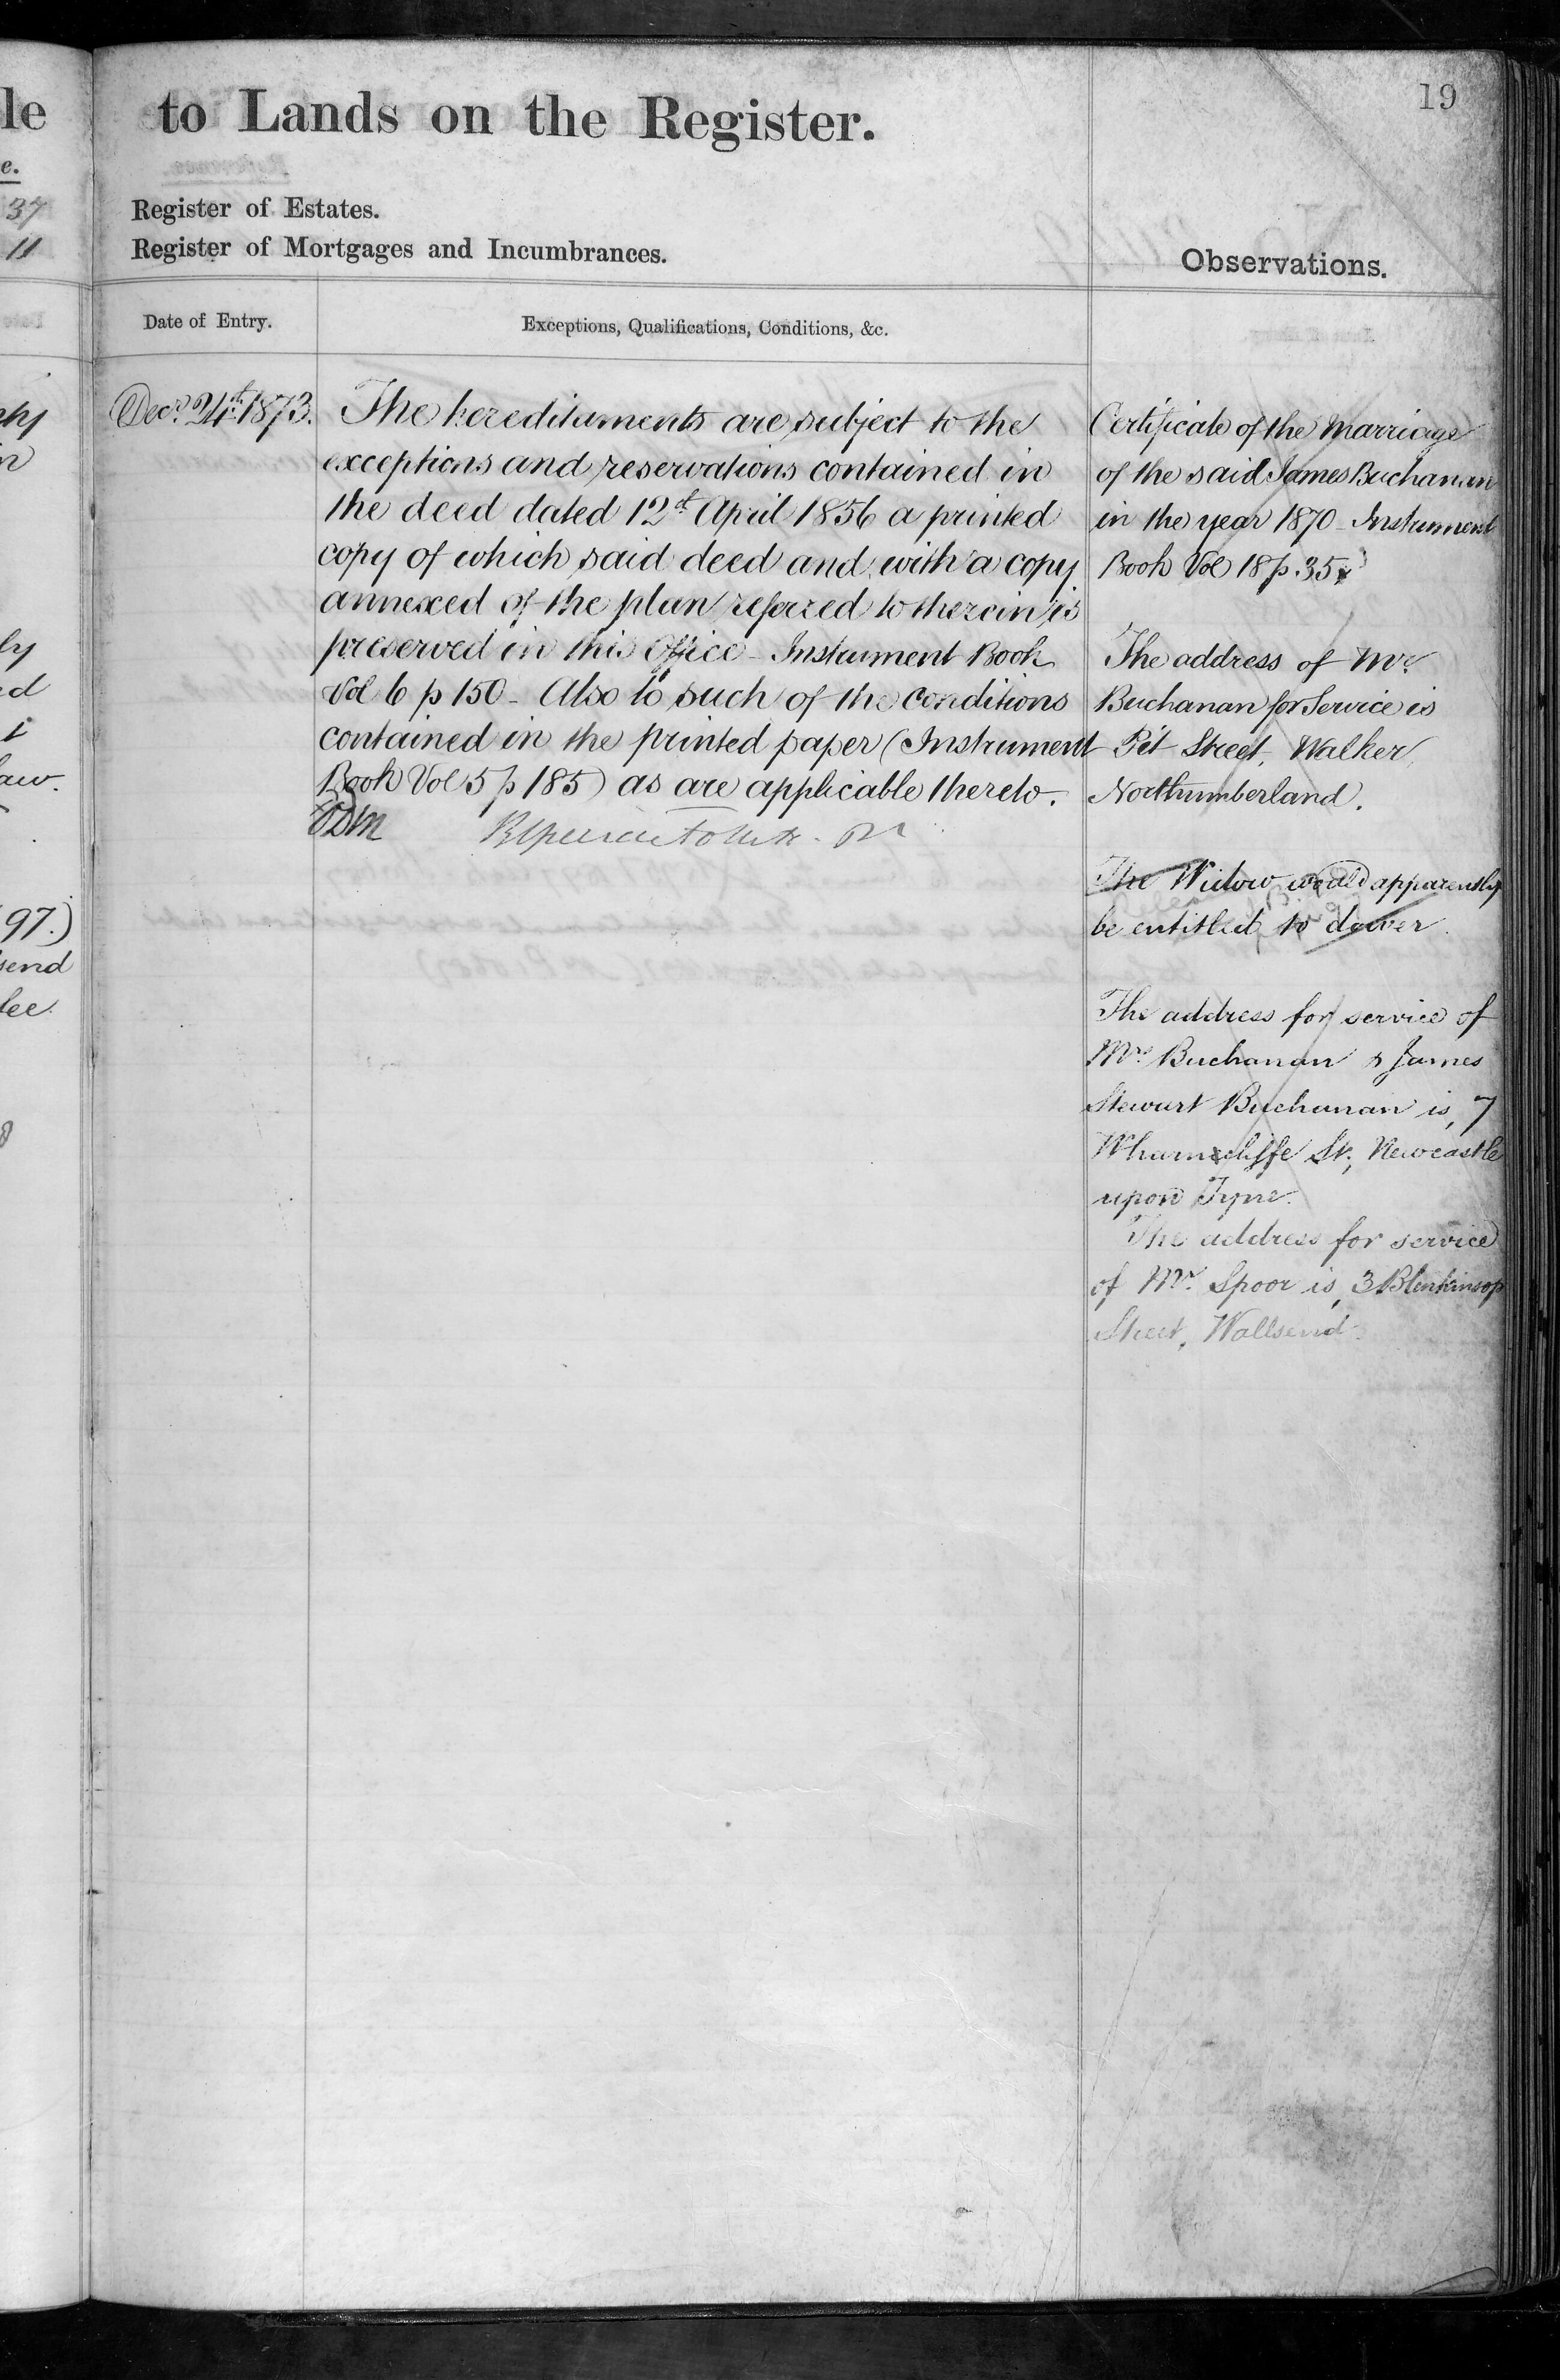 19
to Lands on the Register.
Register of Estates.
Register of Mortgages and Incumbrances.
Observations.
Date of Entry.
Exceptions, Qualifications, Conditions, &c.
Decr. 24th. 1873.
The hereditaments are subject to the
exceptions and reservations contained in
the deed dated 12th April 1856 a printed
copy of which said deed and with a copy
annexed of the plan referred to therein is
preserved in this Office - Instrument Book
Vol 6 p 150 - Also to such of the conditions
contained in the printed paper (Instrument
Book Vol 5 p 185) as are applicable thereto.
Certificate of the Marriage
of the said James Buchanan
in the year 1870 - Instrument
Book Vol 18 p. 35
The address of Mr.
Buchanan for Service is
Pit Street, Walker,
Northumberland.
The Widow would apparently
be entitled to dower.
The address for service of
Mrs. Buchanan & James
Stewart Buchanan is, 7
Wharncliffe St., Newcastle
upon Tyne.
The address for service
of Mr. Spoor is, 3 Blenkinsop
Street, Wallsend.
le
e.
37
11
ly
ed
aw.
97.)
send